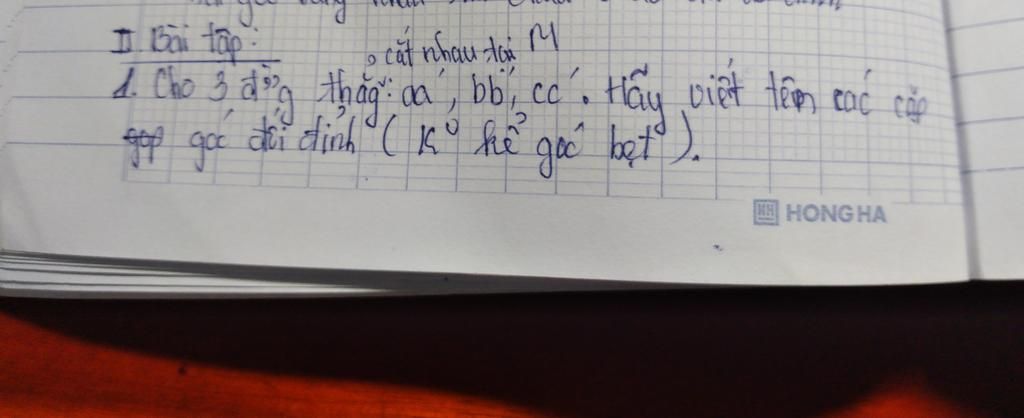 II Bài tập:
, cắt nhau tại M
1. Cho 3 đờg thẳg: aa', bb', cc'. Hãy viết tên các cặp
góc đối đỉnh ( Ko kể góc bẹt ).
HONG HA